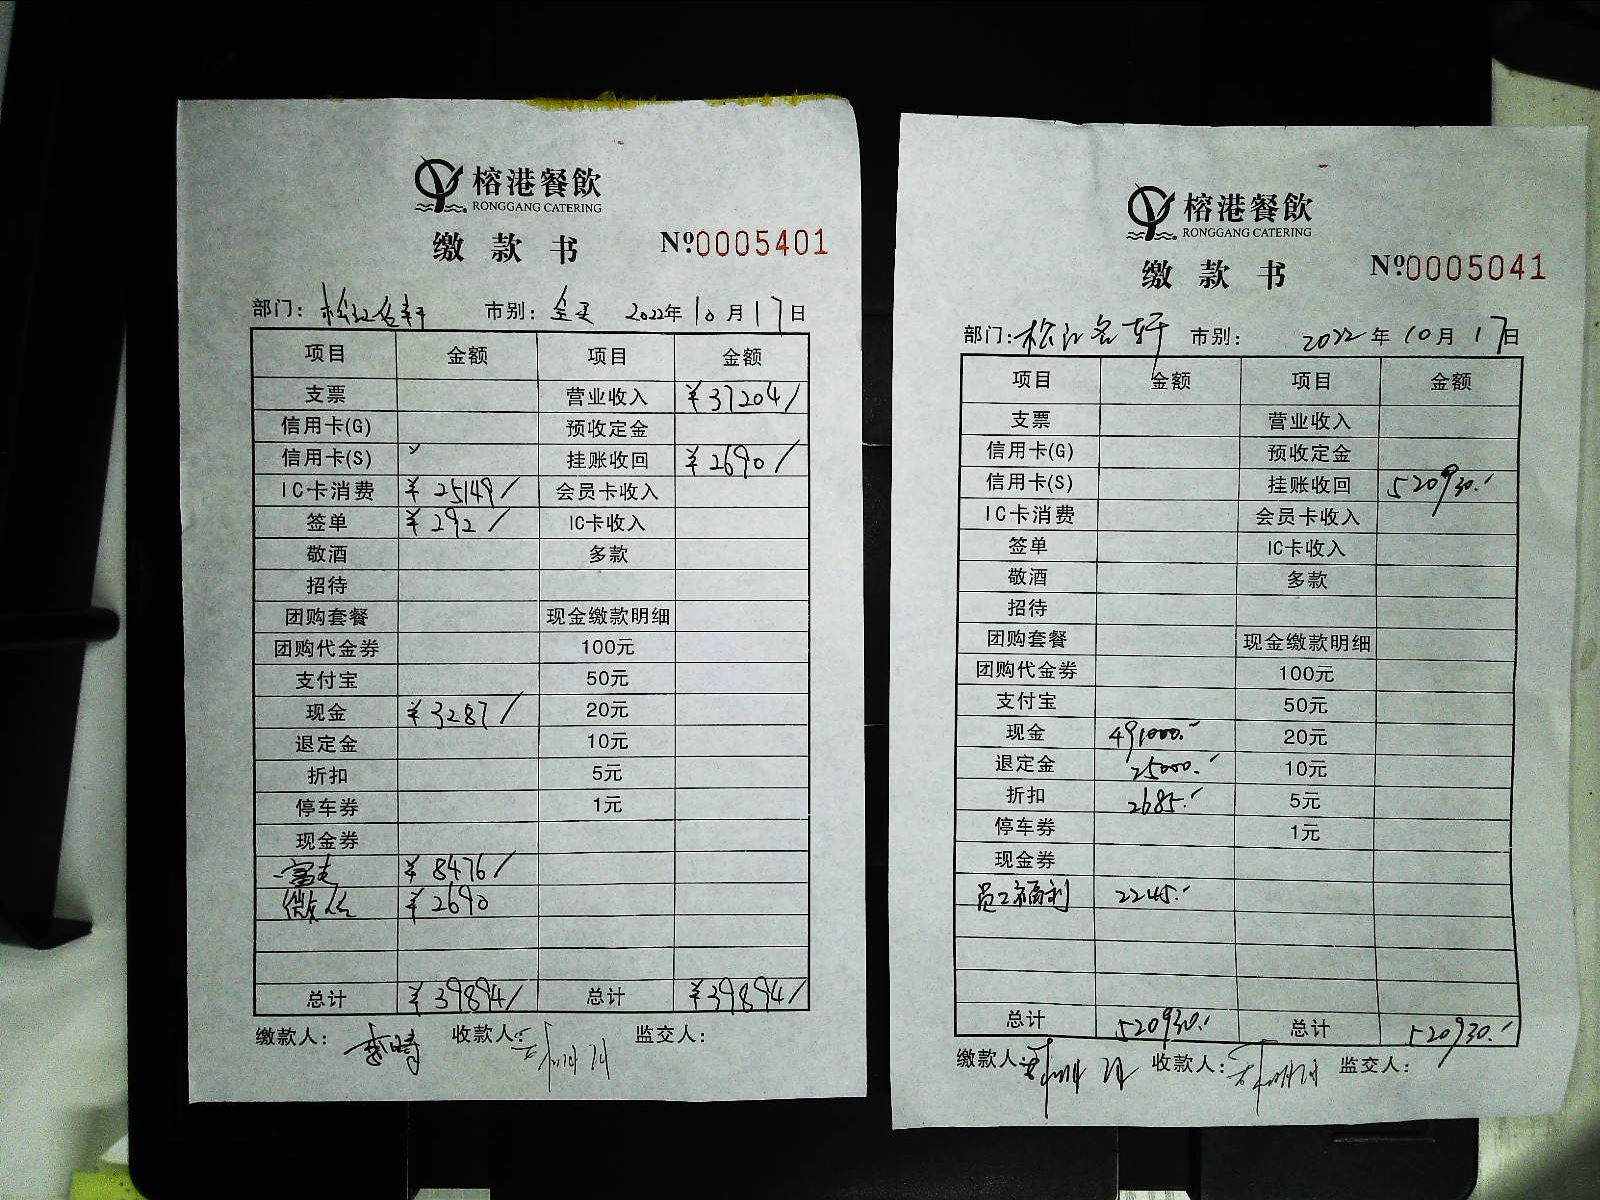 榕港餐飲
RONGGANG CATERING
缴款书 Nº0005401
部门: 松江名轩 市别: 全天 2022年10月17日
项目 金额 项目 金额
支票 营业收入 ¥37204/
信用卡(G) 预收定金
信用卡(S) 挂账收回 ¥2690/
IC卡消费 ¥25149/ 会员卡收入
签单 ¥292/ IC卡收入
敬酒 多款
招待
团购套餐 现金缴款明细
团购代金券 100元
支付宝 50元
现金 ¥3287/ 20元
退定金 10元
折扣 5元
停车券 1元
现金券
¥8476/
¥2690
总计 ¥39894/ 总计 ¥39894/
缴款人: 收款人: 监交人:
榕港餐飲
RONGGANG CATERING
缴款书 Nº0005041
部门: 松江名轩 市别: 2022年10月17日
项目 金额 项目 金额
支票 营业收入
信用卡(G) 预收定金
信用卡(S) 挂账收回 520930.-
IC卡消费 会员卡收入
签单 IC卡收入
敬酒 多款
招待
团购套餐 现金缴款明细
团购代金券 100元
支付宝 50元
现金 491000.- 20元
退定金 25000.- 10元
折扣 2685.- 5元
停车券 1元
现金券
员工福利 2245.-
总计 520930.- 总计 520930.-
缴款人: 收款人: 监交人: